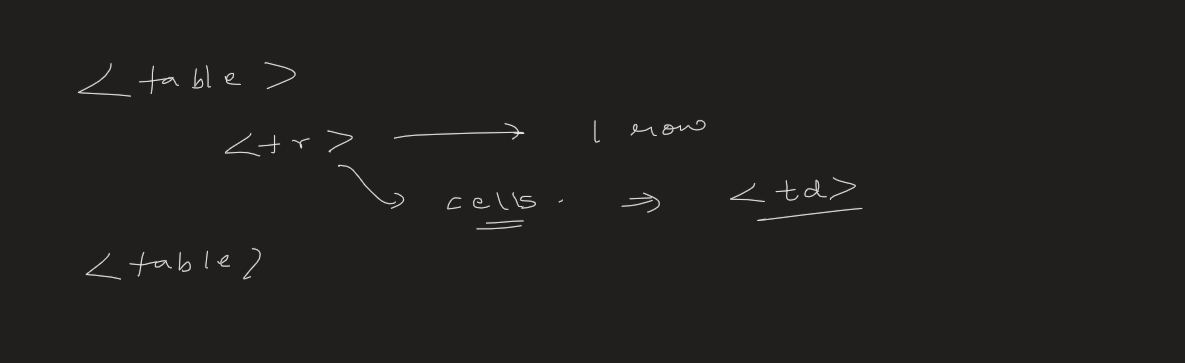 <table>
<tr> → 1 row
cells. ⇒ <td>
<table>